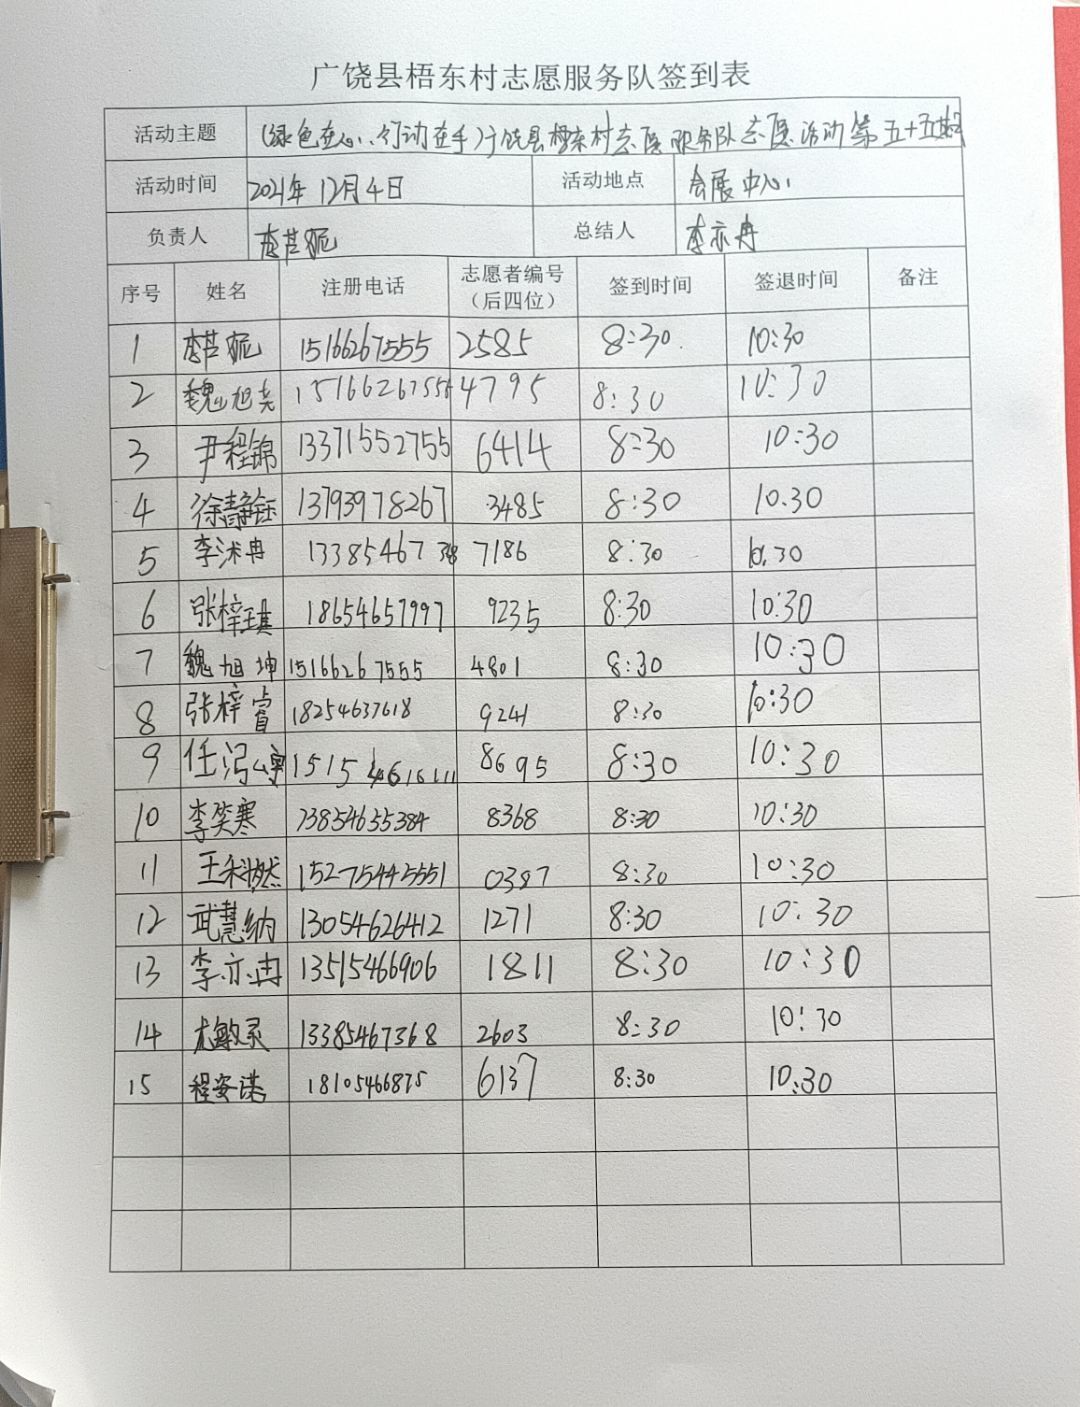 广饶县梧东村志愿服务队签到表
活动主题 (绿色在心、行动在手)广饶县梧东村志愿服务队志愿活动第五十五期
活动时间 2021年12月4日 活动地点 会展中心
负责人 李芸妮 总结人 李亦冉
序号 姓名 注册电话 志愿者编号（后四位） 签到时间 签退时间 备注
1 李芸妮 15166267555 2585 8:30 10:30
2 魏旭尧 15166267555 4795 8:30 10:30
3 尹程锦 13371552755 6414 8:30 10:30
4 徐静钰 13793978267 3485 8:30 10.30
5 李沭冉 7186 8:30 10.30
6 张梓琪 18654657997 9235 8:30 10:30
7 魏旭坤 15166267555 4801 8:30 10:30
8 张梓睿 18254637618 9241 8:30 10:30
9 任 8695 8:30 10:30
10 李笑寒 13854655384 8368 8:30 10:30
11 王 15275445551 0387 8:30 10:30
12 武慧纳 13054626412 1271 8:30 10:30
13 李亦冉 13515466906 1811 8:30 10:30
14 尤敏灵 13385467368 2603 8:30 10:30
15 程安诺 18105466875 6137 8:30 10:30